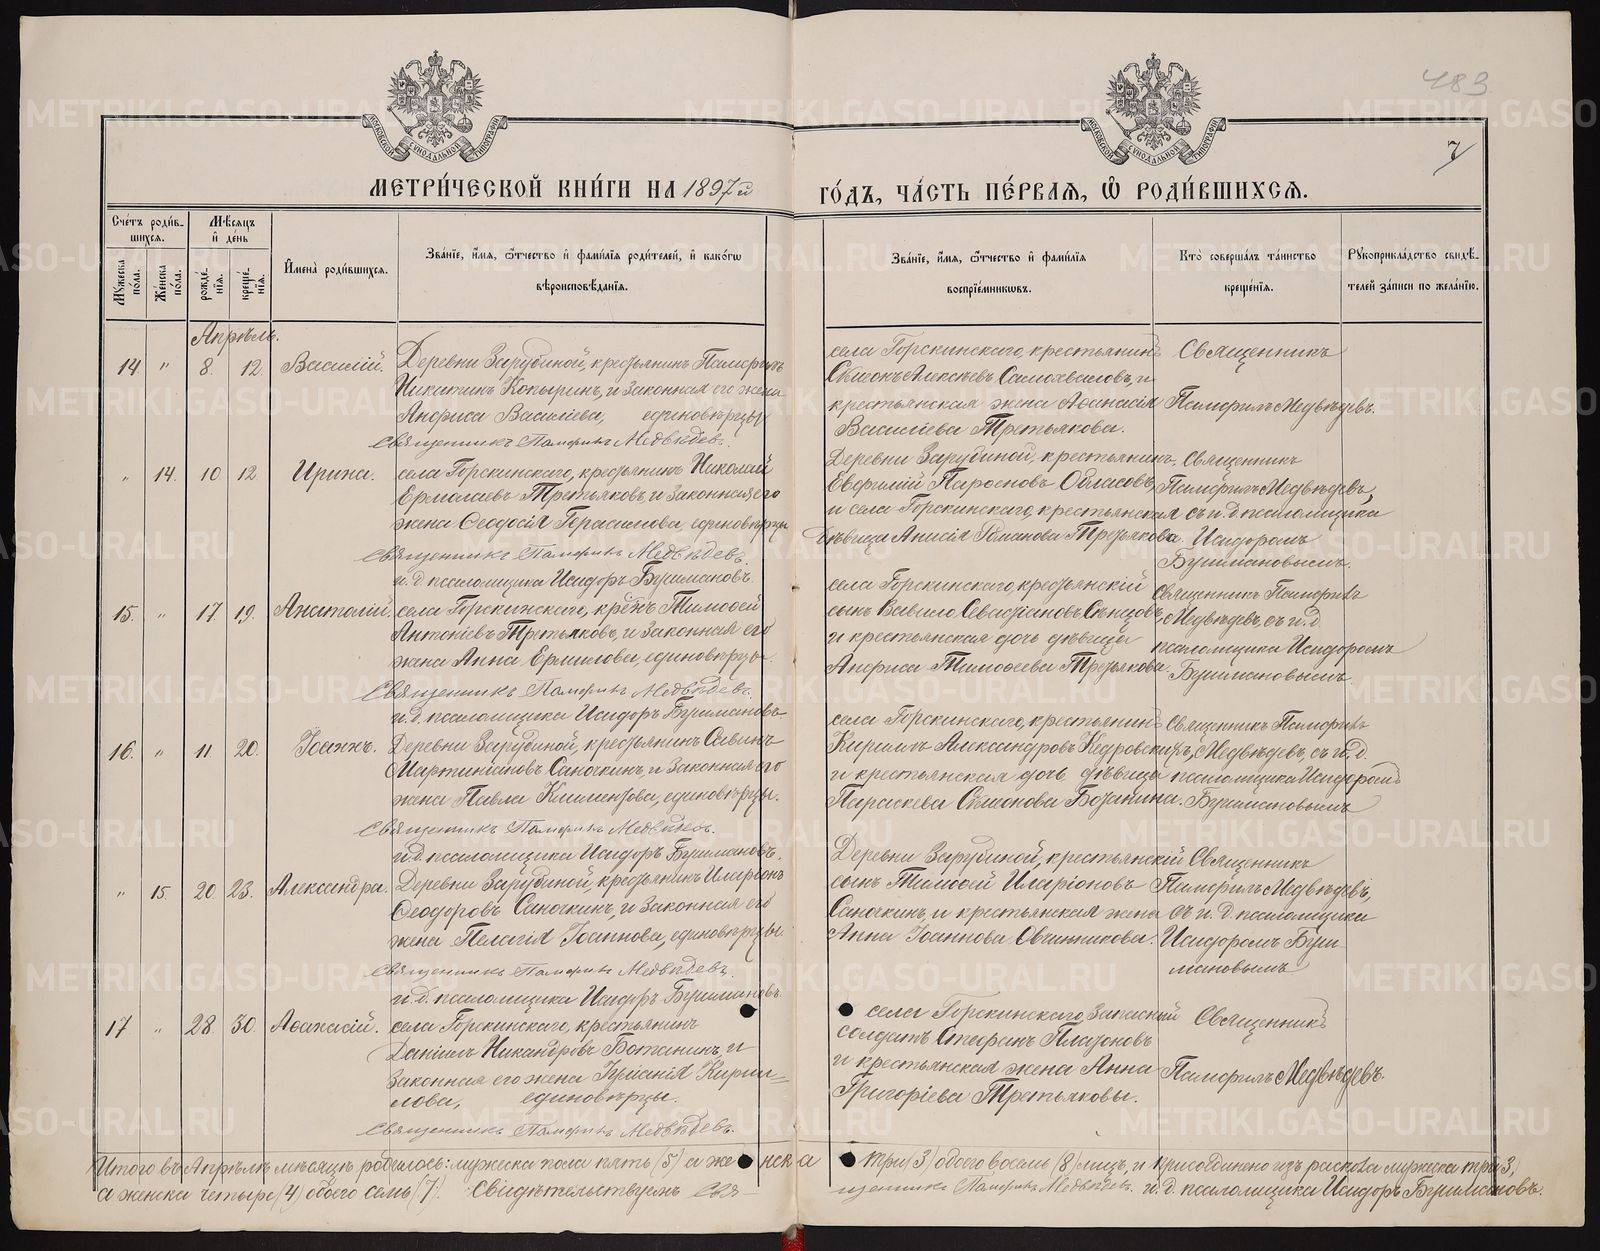 483
7
МОСКОВСКОЙ СѴНОДАЛЬНОЙ ТИПОГРАФІИ
МОСКОВСКОЙ СѴНОДАЛЬНОЙ ТИПОГРАФІИ
МЕТРИ́ЧЕСКОЙ КНИ́ГИ НА 1897й
ГО́ДЪ, ЧА́СТЬ ПЕ́РВАЯ, Ѽ РОДИ́ВШИХСЯ.
Сче́тъ роди́в-
шихся.
Мꙋ́жеска по́ла.
Же́нска по́ла.
Мѣ́сяцъ
и҆ де́нь
рожде́-
нїѧ.
креще́-
нїѧ.
И҆мена̀ роди́вшихся.
Зва́нїе, и҆́мя, ѻ҆́тчество и҆ фами́лїя роди́телей, и҆ како́гѡ
вѣроисповѣ́данїѧ.
Зва́нїе, и҆́мя, ѻ҆́тчество и҆ фами́лїя
воспрїе́мникѡвъ.
Кто̀ соверша́лъ та́инство
креще́нїѧ.
Рꙋкоприкла́дство свидѣ́-
телей за́писи по жела́нїю.
Апрѣль.
14 " 8. 12. Василій.
Деревни Зарубиной, крестьянинъ Памфилъ
Никитинъ Кокыринъ, и законная его жена
Анфиса Василіева, единовѣрцы.
Священникъ Памфилъ Медвѣдевъ.
села Горскинскаго, крестьянинъ
Сѵмеонъ Алексѣевъ Самохваловъ, и
крестьянская жена Аѳанасія
Василіева Третьякова.
Священникъ
Памфилъ Медвѣдевъ.
" 14. 10 12 Ирина.
села Горскинскаго, крестьянинъ Николай
Ермолаевъ Третьяковъ, и законная его
жена Ѳеодосія Герасимова, единовѣрцы
Священникъ Памфилъ Медвѣдевъ.
и. д. псаломщика Исидоръ Бушмановъ.
Деревни Зарубиной, крестьянинъ
Евфимій Обласовъ,
и села Горскинскаго, крестьянская
дѣвица Анисія Романова Третьякова.
Священникъ
Памфилъ Медвѣдевъ,
съ и. д. псаломщика
Исидоромъ
Бушмановымъ.
15. " 17. 19. Анатолій.
села Горскинскаго, крѣнъ Тимоѳей
Антоніевъ Третьяковъ, и законная его
жена Анна Ермилова, единовѣрцы.
Священникъ Памфилъ Медвѣдевъ.
и. д. псаломщика Исидоръ Бушмановъ
села Горскинскаго, крестьянскій
сынъ Вавило Севастіановъ Сѣнцовъ,
и крестьянская дочь дѣвица
Анфиса Тимоѳеева Третьякова.
Священникъ Памфилъ
Медвѣдевъ, съ и. д.
псаломщика Исидоромъ
Бушмановымъ.
16. " 11. 20. Іоаннъ.
Деревни Зарубиной, крестьянинъ Савинъ
Мартиніановъ Саночкинъ, и законная его
жена Павла Климентова, единовѣрцы.
Священникъ Памфилъ Медвѣдевъ.
и. д. псаломщика Исидоръ Бушмановъ.
села Горскинскаго, крестьянинъ
Кириллъ Александровъ Кедровскихъ,
и крестьянская дочь дѣвица
Параскева Сѵмеонова Ботанина.
Священникъ Памфилъ
Медвѣдевъ, съ и. д.
псаломщика Исидоромъ
Бушмановымъ
" 15. 20 23. Александра.
Деревни Зарубиной, крестьянинъ Иларіонъ
Ѳеодоровъ Саночкинъ, и законная его
жена Пелагія Іоаннова, единовѣрцы.
Священникъ Памфилъ Медвѣдевъ.
и. д. псаломщика Исидоръ Бушмановъ.
Деревни Зарубиной, крестьянскій
сынъ Тимоѳей Иларіоновъ
Саночкинъ, и крестьянская жена
Анна Іоаннова Овчинникова.
Священникъ
Памфилъ Медвѣдевъ,
съ и. д. псаломщика
Исидоромъ Буш-
мановымъ
17 " 28 30. Аѳанасій.
села Горскинскаго, крестьянинъ
Даніилъ Никандровъ Ботанинъ, и
законная его жена Кирил-
лова, единовѣрцы.
Священникъ Памфилъ Медвѣдевъ.
села Горскинскаго, запасный
солдатъ Стефанъ Платоновъ
и крестьянская жена Анна
Григоріева Третьяковы.
Священникъ
Памфилъ Медвѣдевъ.
Итого въ Апрѣлѣ мѣсяцѣ родилось: мужеска пола пять (5) а женска три (3) обоего восемь (8) лицъ, и присоединено изъ раскола мужеска три 3,
а женска четыре (4) обоего семь (7). Свидѣтельствуемъ Свя-
щенникъ Памфилъ Медвѣдевъ. и. д. псаломщика Исидоръ Бушмановъ.
METRIKI.GASO-URAL.RU